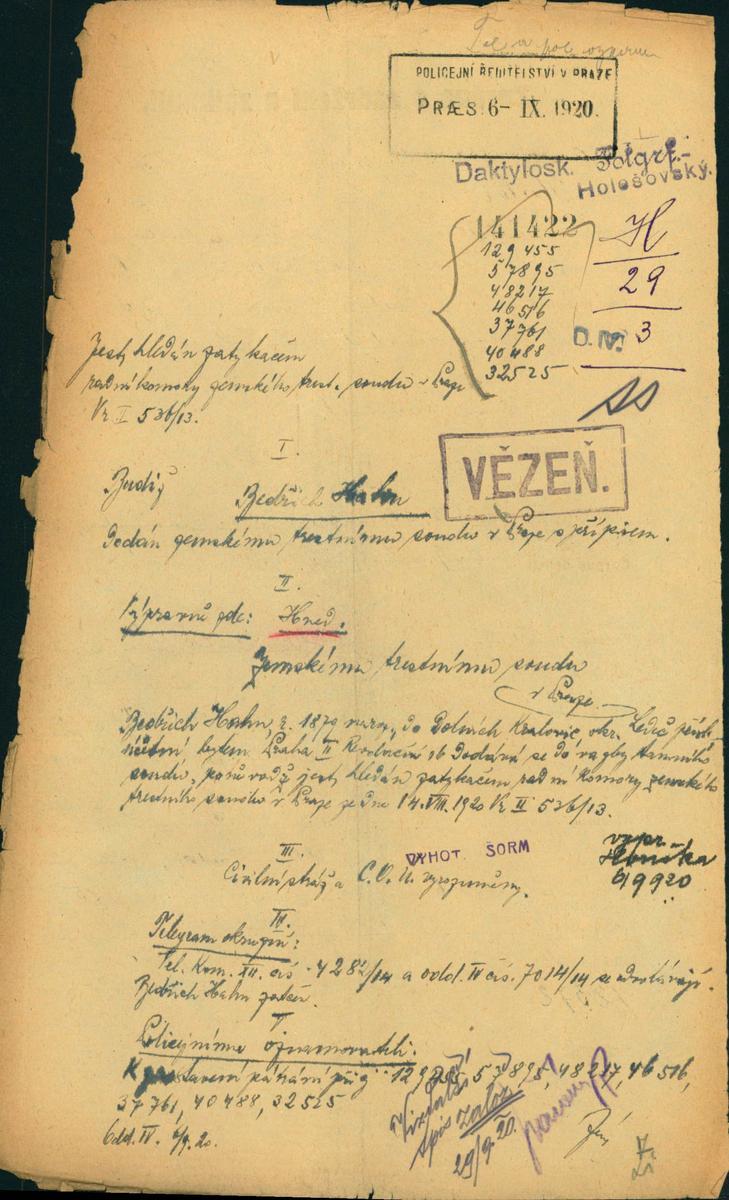 Tel a pol
POLICEJNÍ ŘEDITELSTVÍ V PRAZE
PRÆS. 6- IX. 1920.
Daktylosk.
Holešovský.
141422
129455
57895
48217
46516
37761
40488
32525
H
29
3
D.IV.
Jest hledán zatykačem
radní komory zemského trest. soudu v Praze
Vr II 536/13.
I.
VĚZEŇ.
Budiž Bedřich Hahn
dodán zemskému trestnímu soudu v Praze s přípisem.
II.
Výpravně zde: Hned.
Zemskému trestnímu soudu
v Praze
Bedřich Hahn r. 1879 naroz. do Dolních Kralovic okr. Ledeč
bytem Praha II Revoluční 16 dodává se do vazby tamního
soudu, poněvadž jest hledán zatykačem radní komory zemského
trestního soudu v Praze ze dne 14.VIII.1920 Vr II 536/13.
III.
VYHOT. ŠORM
vypr.
6/9 920
Civilní stráž a C.O.U. vyrozuměny.
IV.
Telegram okružní:
Tel. Kom. XII. čís. 4282/14 a odd. IV čís. 7014/14 se odvolávají.
Bedřich Hahn zatčen.
V
Policejnímu oznamovateli:
K zastavení pátrání při z 129455, 57895, 48217, 46516,
37761, 40488, 32525
Odd. IV. 6/9. 20.
spis založ
29/9. 20.